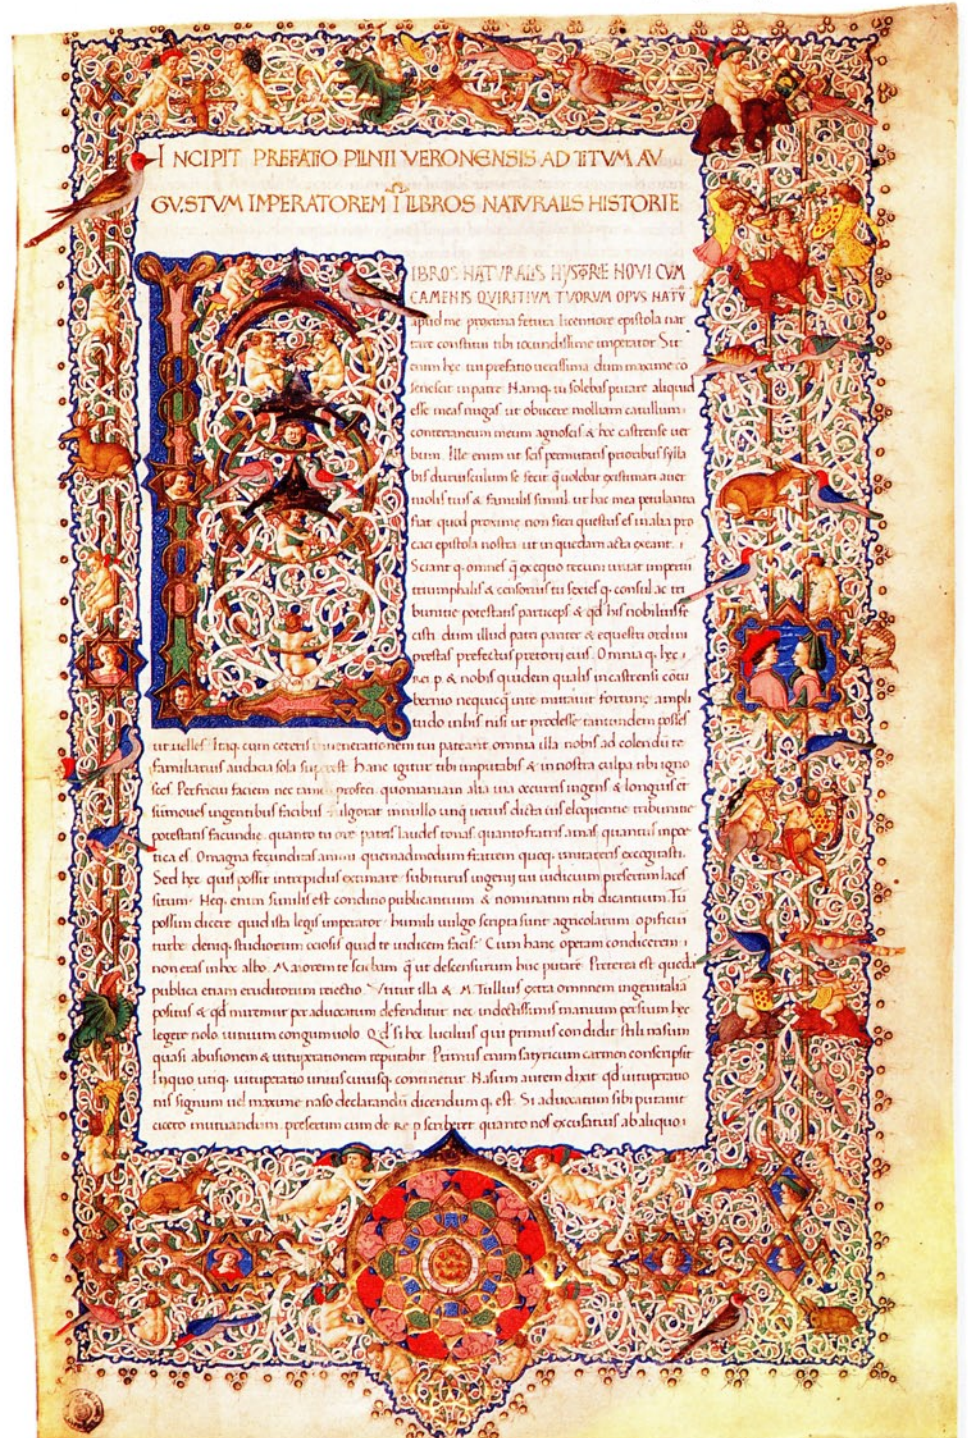 INCIPIT PREFATIO PLINII VERONENSIS AD TITVM AV
GVSTVM IMPERATOREM Ī LIBROS NATVRALIS HISTORIE
LIBROS NATVRALIS HYSTORIE NOVI CVM
CAMENIS QVIRITIVM TVORVM OPVS NATŪ
apud me proxima fetura licentiore epistola nar
rare constitui tibi iocundissime imperator Sit
enim hec tui prefatio uerissima dum maxime cō
senescit in patre Namq. tu solebas putare aliquid
esse meas nugas ut obiicere molliam catullum
conterraneum meum agnoscis & hoc castrense uer
bum. Ille enim ut scis permutatis prioribus sylla
bis duriusculum se fecit q̄ uolebat existimari a uer
nolis tuis & famulis simul ut hac mea petulantia
fiat quod proxime non fieri questus es in alia pro
caci epistola nostra ut in quedam acta exeant.
Sciant q. omnes q̄ ex equo tecum uiuat imperiū
triumphalis & censorius tu sexies q. consul ac tri
bunitie potestatis particeps & qd his nobilius fe
cisti dum illud patri pariter & equestri ordini
prestas prefectus pretorij eius. Omnia q. hec
rei p. & nobis quidem qualis in castrensi cōtu
bernio nec quicq̄ in te mutauit fortune ampli
tudo in his nisi ut prodesse tantundem posses
ut uelles Itaq. cum ceteris in uenerationem tui pateant omnia illa nobis ad colendū te
familiarius audacia sola superest. Hanc igitur tibi imputabis & in nostra culpa tibi igno
sces Perfricui faciem nec tamen profeci. quoniam alia uia occurris ingens & longius et
sūmoues ingentibus facibus fulgorat in nullo unq̄ uerius dicta uis eloquentie tribunitie
potestatis facundie. quanto tu ore patris laudes tonas. quanto fratris amas quantus in poe
tica es. O magna fecunditas animi. quemadmodum fratrem quoq. imitareris excogitasti.
Sed hec quis possit intrepidus extimare subiturus ingenij tui iudicium presertim laces
situm. Neq. enim similis est conditio publicantium & nominatim tibi dicantium. Tū
possim dicere quid ista legis imperator humili uulgo scripta sunt agricolarum opificū
turbe deniq. studiorum ociosis quid te iudicem facis? Cum hanc operam condicerem
non eras in hoc albo. Maiorem te sciebam q̄ ut descensurum huc putarē. Preterea est quedā
publica etiam eruditorum reiectio. Vtitur illa & M. Tullius extra omnem ingenij alia
positus & qd miremur per aduocatum defenditur nec indoctissimis manium persium hec
legere nolo iunium congum uolo. Qd si hoc lucilius qui primus condidit stili nasum
quasi abusionem & uituperationem reputabit Primus enim satyricum carmen conscripsit
In quo utiq. uituperatio unius cuiusq. continetur. Nasum autem dixit qd uituperatio
nis signum uel maxime naso declarandū dicendum q. est. Si aduocatum sibi putauit
cicero mutuandum. presertim cum de re p. scriberet quanto nos excusatius ab aliquo